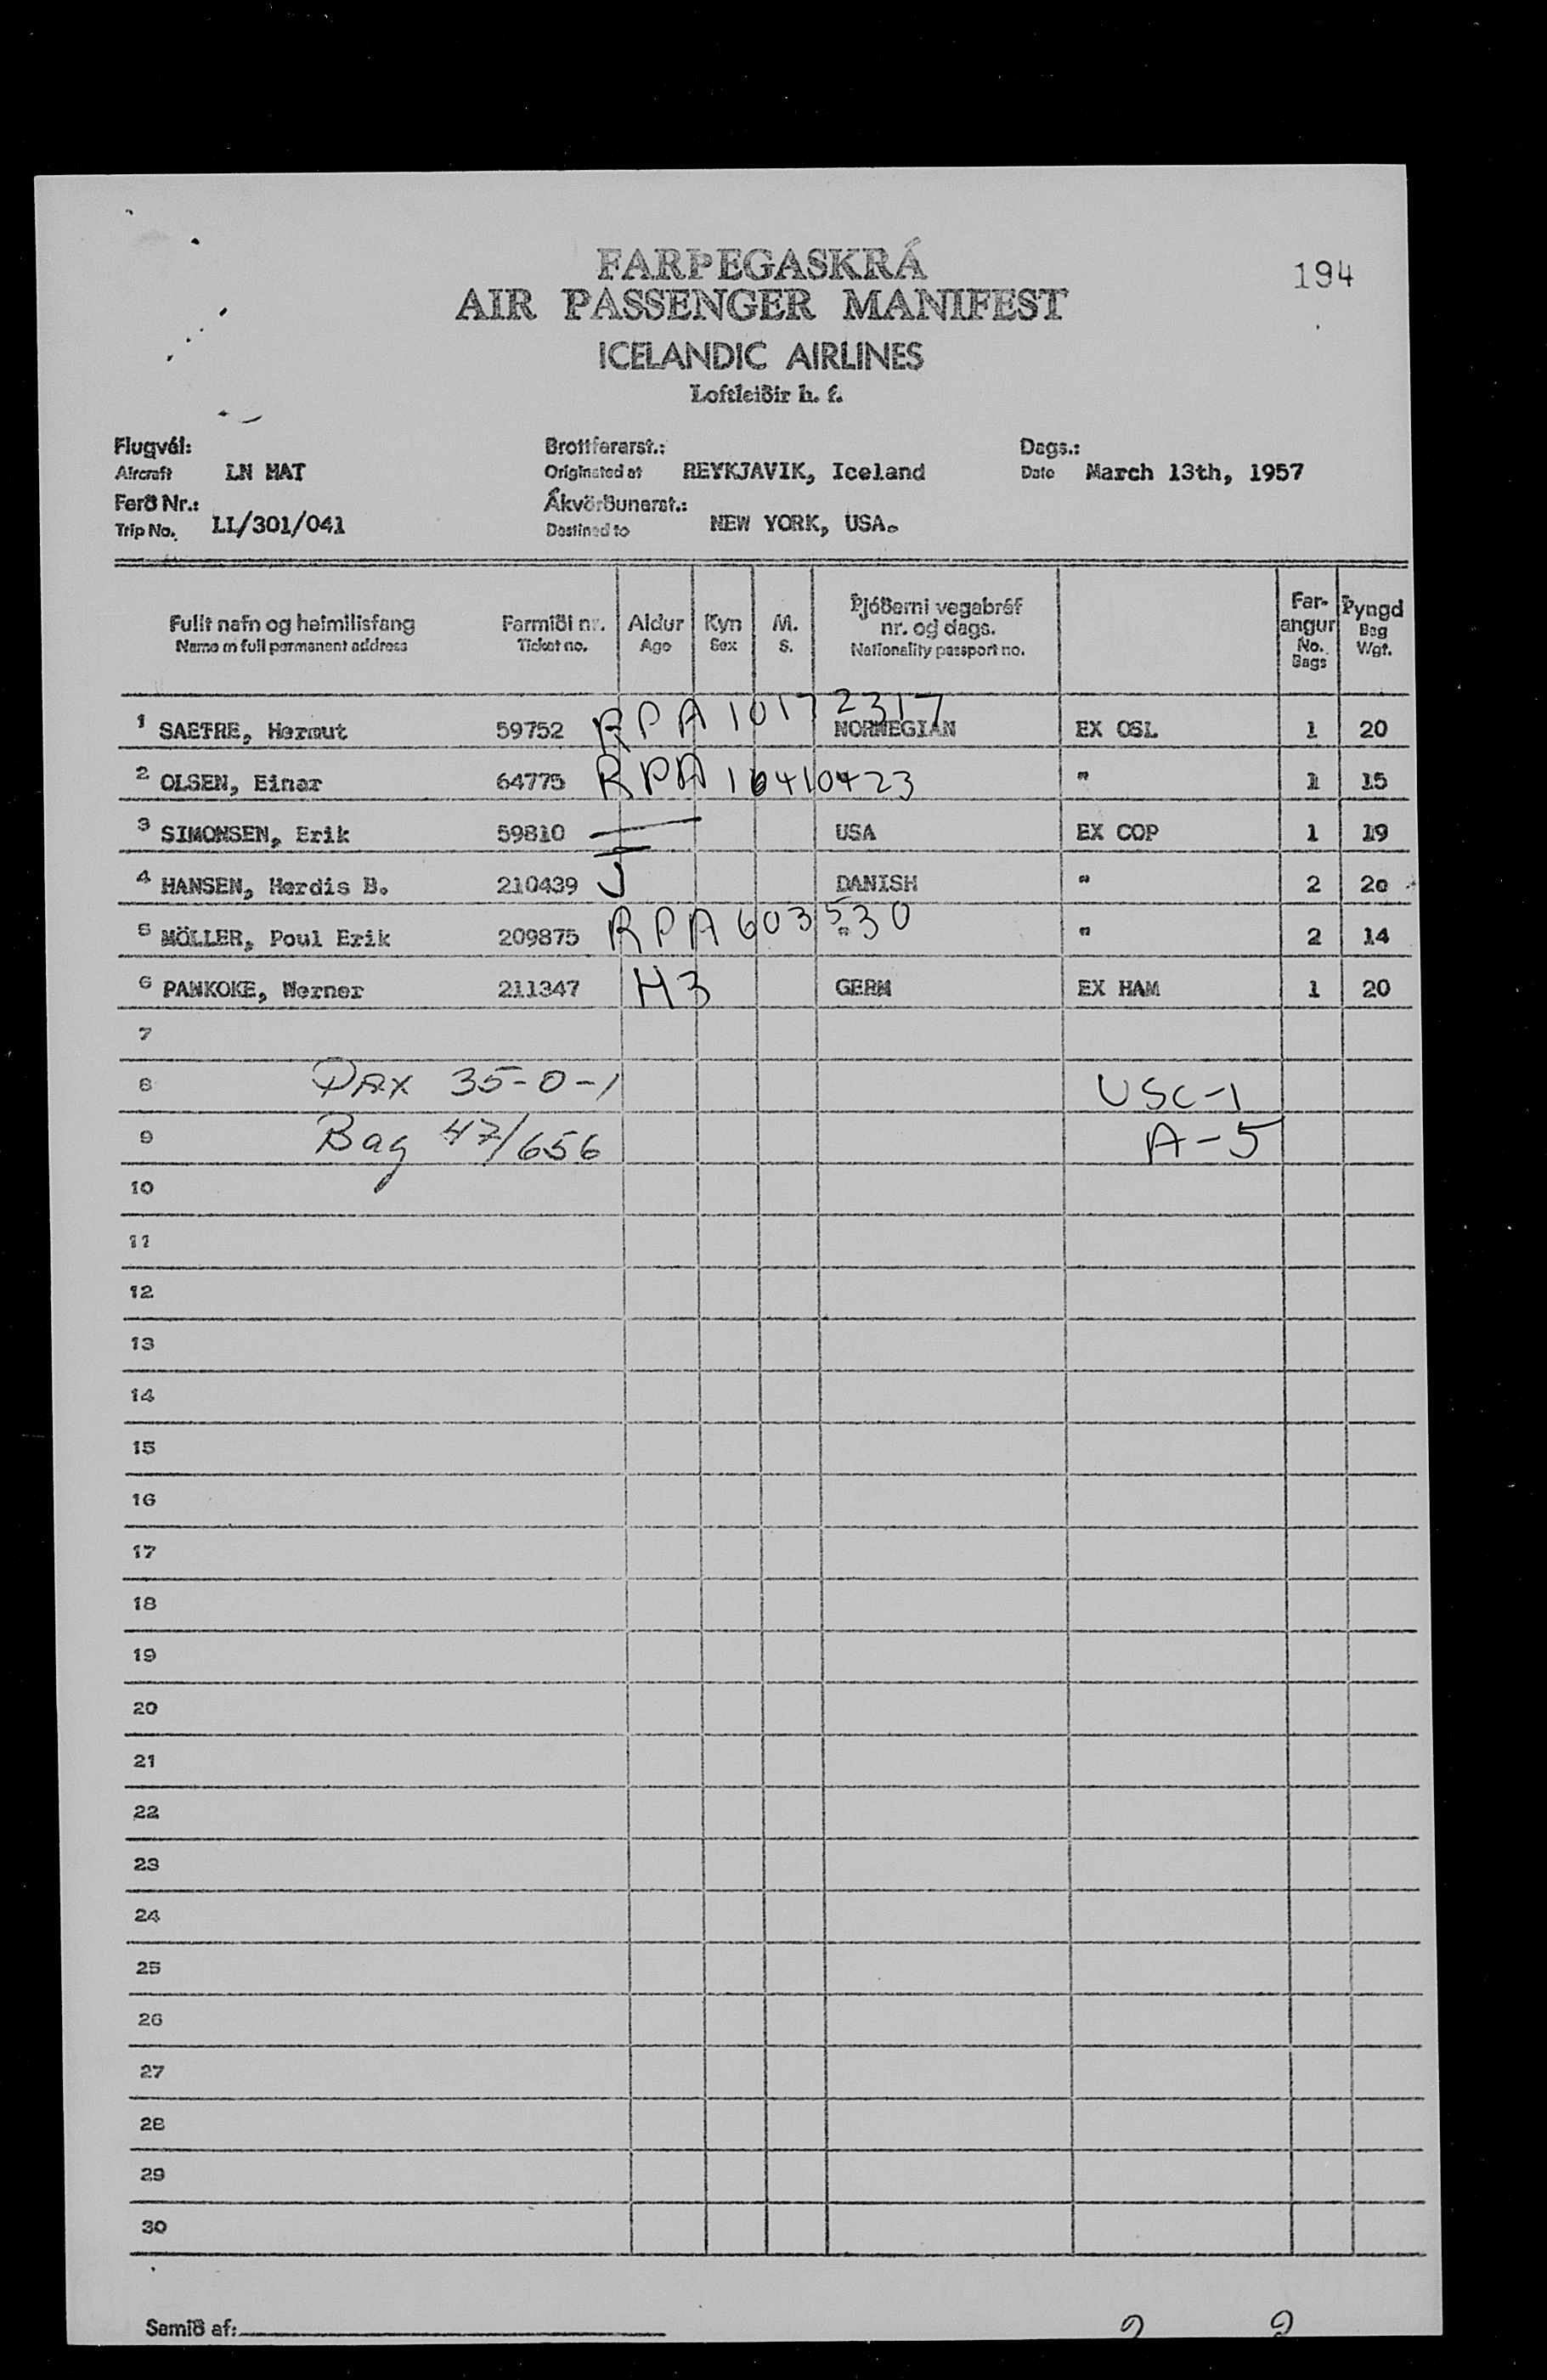 194
FARÞEGASKRÁ
AIR PASSENGER MANIFEST
ICELANDIC AIRLINES
Loftleiðir h. f.
Flugvél: Brottfararst.: Dags.:
Aircraft LN HAT Originated at REYKJAVIK, Iceland Date March 13th, 1957
Ferð Nr.: Ákvörðunarst.:
Trip No. LL/301/041 Destined to NEW YORK, USA.
Fullt nafn og heimilisfang Farmiði nr. Aldur Kyn M. Þjóðerni vegabréf nr. og dags. Farangur Þyngd
Name in full permanent address Ticket no. Age Sex S. Nationality passport no. No. Bags Bag Wgt.
1 SAETRE, Hermut 59752 RPA 10172317 NORWEGIAN EX OSL 1 20
2 OLSEN, Einar 64775 RPA 10410423 " 1 15
3 SIMONSEN, Erik 59810 — USA EX COP 1 19
4 HANSEN, Herdis B. 210439 J DANISH " 2 20
5 MÖLLER, Poul Erik 209875 RPA 603530 " " 2 14
6 PANKOKE, Werner 211347 H3 GERM EX HAM 1 20
7
8 PAX 35-0-1 USC-1
9 Bag 47/656 A-5
10
11
12
13
14
15
16
17
18
19
20
21
22
23
24
25
26
27
28
29
30
Samið af: